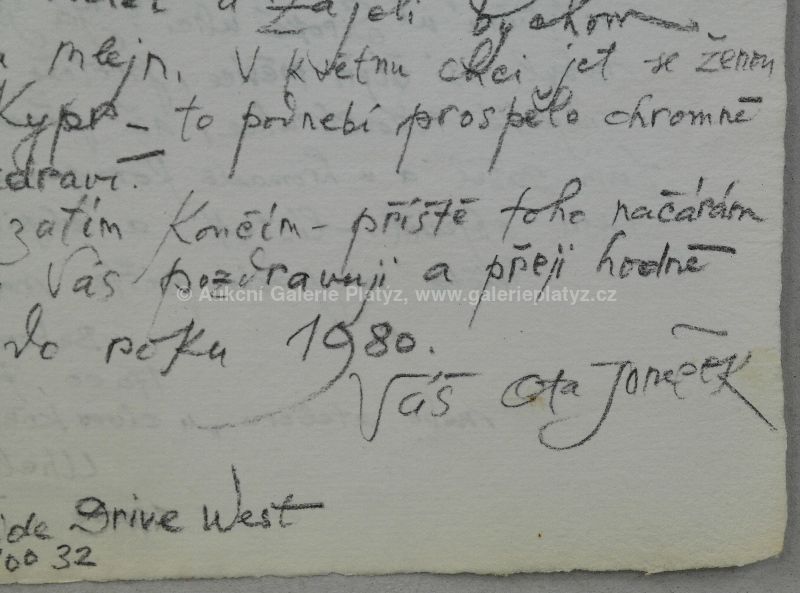 a zajeli bychom
mlejn. V květnu chci jet se ženou
Kypr – to podnebí prospělo chromné
zdraví.
zatím končím – příště toho načárám
Vás pozdravuji a přeji hodně
do roku 1980.
Váš Ota Janeček
ide Drive West
00 32
© Aukční Galerie Platýz, www.galerieplatyz.cz